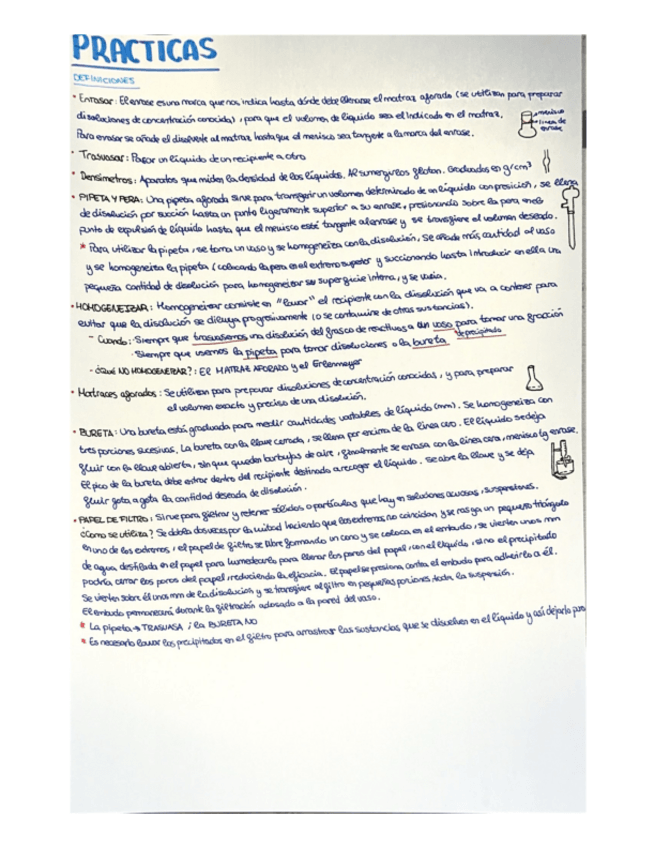 PRACTICAS
DEFINICIONES
• Enrasar: El enrase es una marca que nos indica hasta dónde debe llenarse el matraz aforado (se utilizan para preparar
disoluciones de concentración conocida), para que el volumen de líquido sea el indicado en el matraz.
Para enrasar se añade el disolvente al matraz hasta que el menisco sea tangente a la marca del enrase.
menisco
linea de
enrase
• Trasvasar: Pasar un líquido de un recipiente a otro
• Densímetros: Aparatos que miden la densidad de los líquidos. Al sumergirlos flotan. Graduados en g/cm³
• PIPETA Y PERA: Una pipeta aforada sirve para transferir un volumen determinado de un líquido con presición, se llena
de disolución por succión hasta un punto ligeramente superior a su enrase, presionando sobre la para en el
punto de expulsión de líquido hasta que el menisco este tangente al enrase y se transfiere el volumen deseado.
* Para utilizar la pipeta, se toma un vaso y se homogeneiza con la disolución, Se añade más cantidad al vaso
y se homogeneiza la pipeta (colocando la pera en el extremo superior y succionando hasta introducir en ella una
pequeña cantidad de disolución para homogeneizar su superficie interna, y se vacia.
• HOMOGENEIZAR: Homogeneizar consiste en "lavar" el recipiente con la disolución que va a contener para
evitar que la disolución se diluya progresivamente (o se contamine de otras sustancias).
- Cuando: · Siempre que trasvasemos una disolución del frasco de reactivos a un vaso para tomar una fracción
· Siempre que usemos la pipeta para tomar disoluciones o la bureta
- ¿QUE NO HOMOGENEIZAR?: El MATRAZ AFORADO y el Erlenmeyer
• Matraces aforados: Se utilizan para preparar disoluciones de concentración conocidas, y para preparar
el volumen exacto y preciso de una disolución.
• BURETA: Una bureta está graduada para medir cantidades variables de líquido (mm). Se homogeneiza con
tres porciones sucesivas. La bureta con la llave cerrada, se llena por encima de la linea cero. El líquido se deja
fluir con la llave abierta, sin que queden burbujas de aire, finalmente se enrasa con la linea cera, menisco tg enrase.
El pico de la bureta debe estar dentro del recipiente destinado a recoger el líquido. Se abre la llave y se deja
fluir gota a gota la cantidad deseada de disolución.
• PAPEL DE FILTRO: Sirve para filtrar y retener sólidos o partículas que hay en soluciones acuosas, suspensiones.
¿Como se utiliza? Se dobla dos veces por la mitad haciendo que los extremos no coincidan y se rasga un pequeño triángulo
en uno de los extremos, el papel de filtro se abre formando un cono y se coloca en el embudo, se vierten unos mm
de agua destilada en el papel para humedecerlo para llenar los poros del papel, con el líquido, sino el precipitado
podría cerrar los poros del papel, reduciendo la eficacia. El papel se presiona contra el embudo para adherirlo a él.
Se vierten sobre él unos mm de la disolución y se transfiere al filtro en pequeñas porciones toda la suspensión.
El embudo permanecerá durante la filtración adosado a la pared del vaso.
* La pipeta → TRASVASA ; la BURETA NO
* Es necesario lavar los precipitados en el filtro para arrastrar las sustancias que se disuelven en el líquido y así dejarlo puro